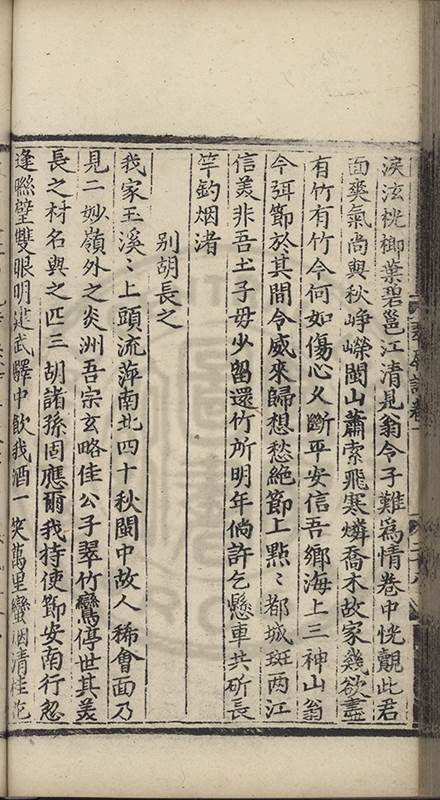 淚泫桄榔葉碧邕江清見翁令子難爲情卷中恍覩此君
面爽氣尚與秋崢嶸閩山蕭索飛寒燐喬木故家幾欲盡
有竹有竹今何如傷心久斷平安信吾鄉海上三神山翁
今弭節於其間令威來歸想愁絕節上點〻都城斑两江
信美非吾土子毋少留還竹所明年倘許乞懸車共斫長
竿釣烟渚
别胡長之
我家玉溪〻上頭流萍南北四十秋閩中故人稀會面乃
見二妙嶺外之炎洲吾宗玄略佳公子翠竹鸞停世其美
長之材名與之匹三胡諸孫固應爾我持使節安南行忽
逢聯璧雙眼明建武驛中飲我酒一笑萬里蠻烟清桂花